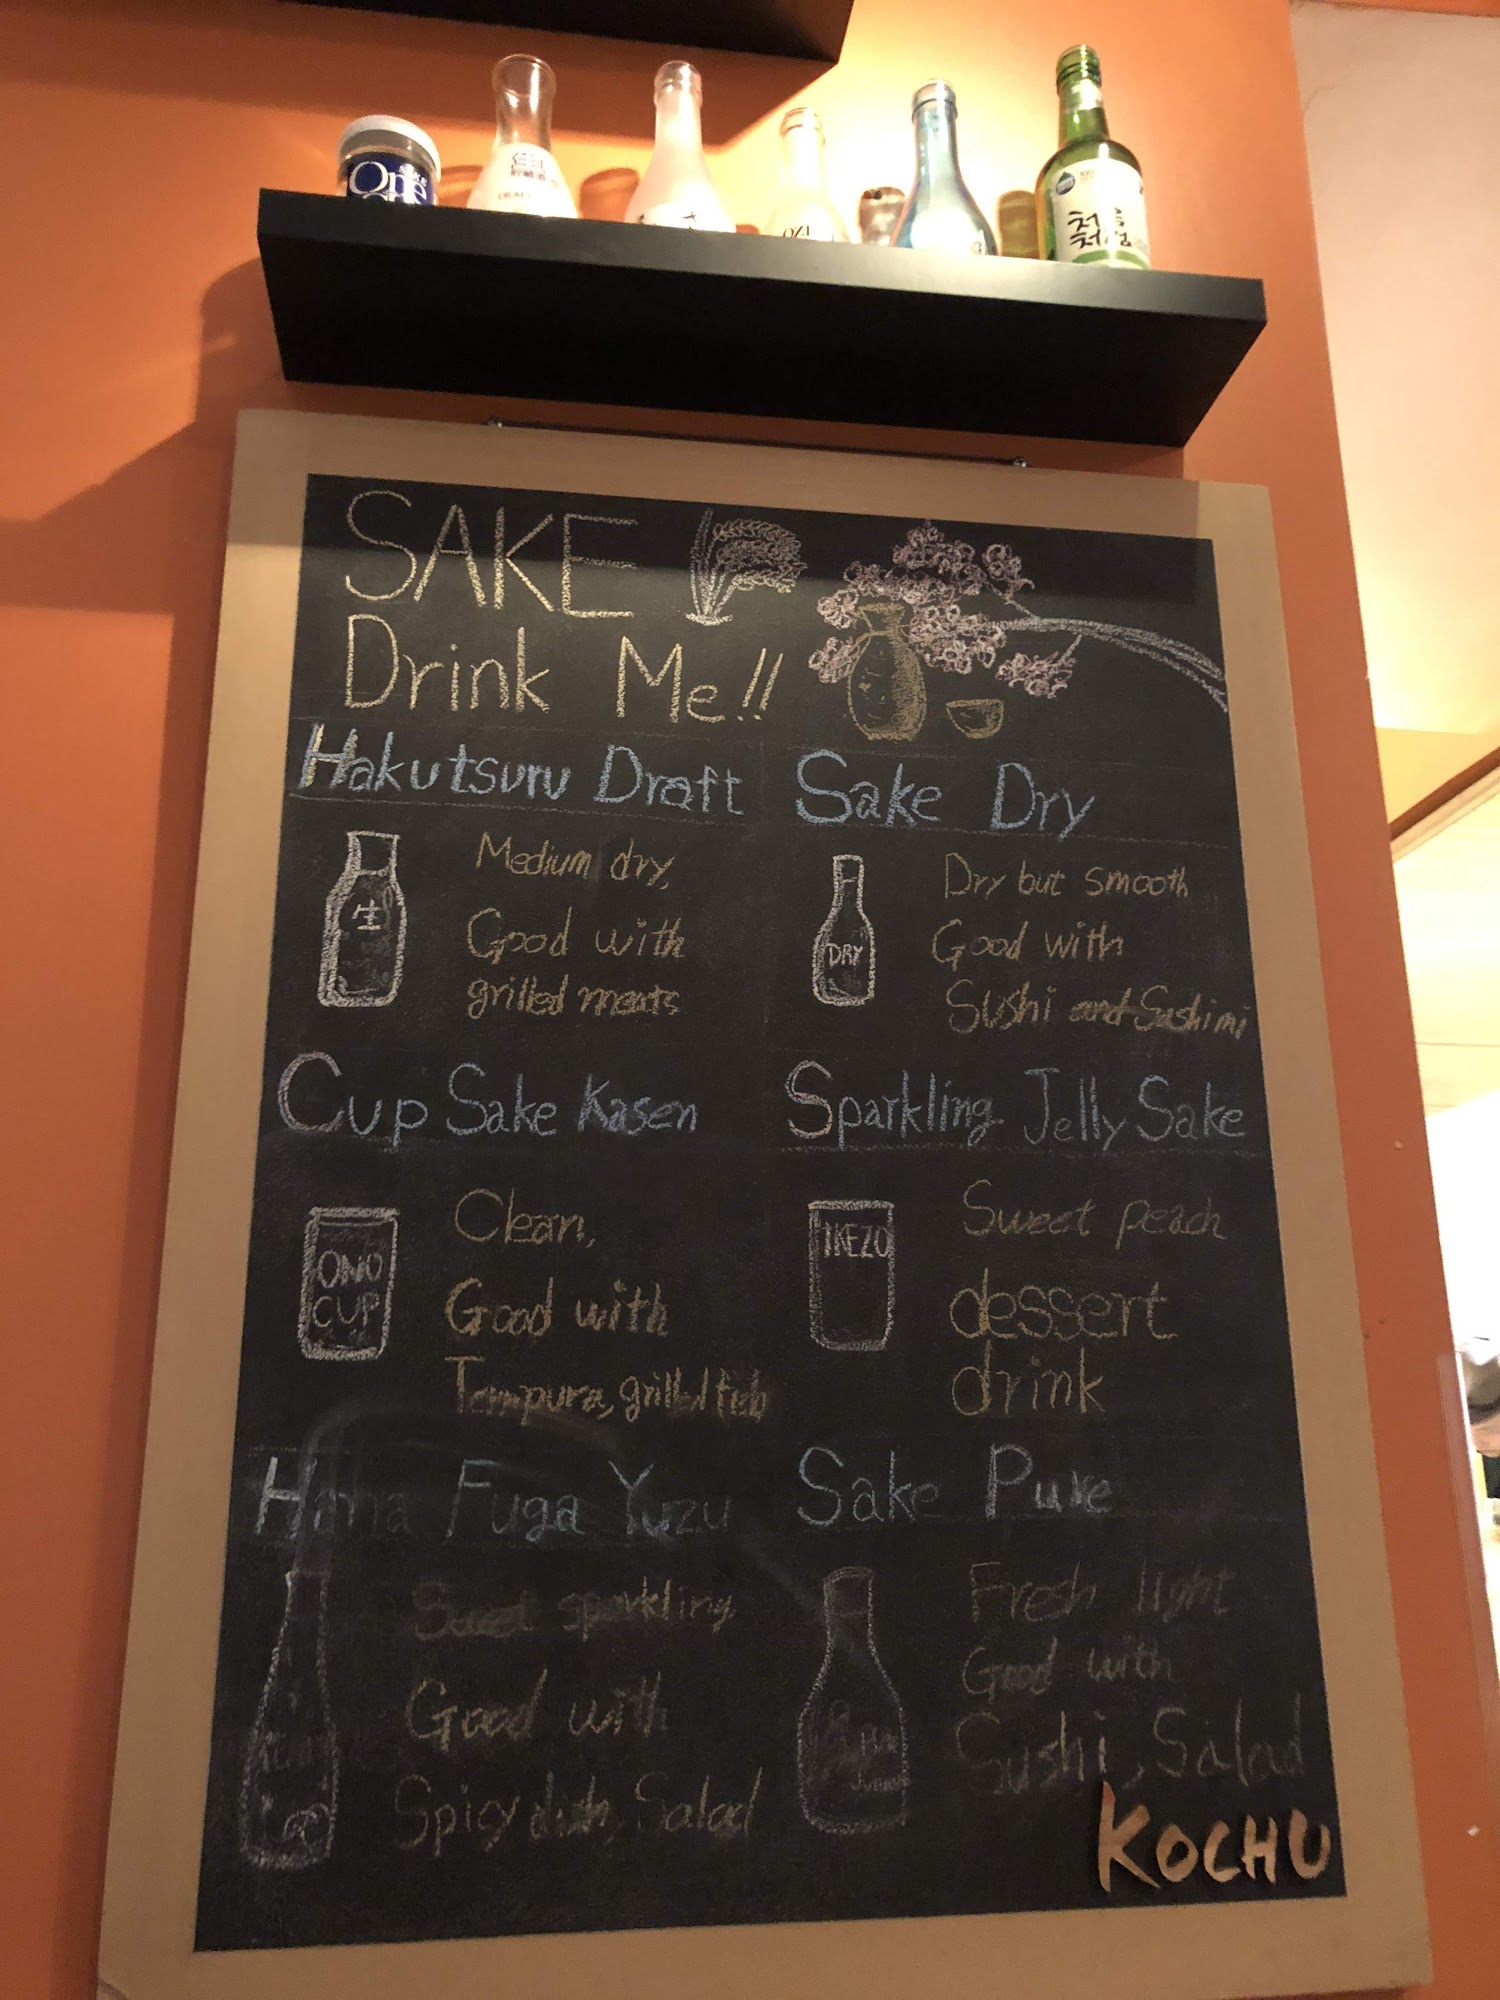 SAKE
One
DRAFT
OZ
처음
처럼
SAKE
Drink Me!!
Hakutsuru Draft
生
Medium dry,
Good with
grilled meats
Sake Dry
DRY
Dry but smooth
Good with
Sushi and Sashimi
Cup Sake Kasen
ONO
CUP
Clean,
Good with
Tempura, grilled fish
Sparkling Jelly Sake
IKEZO
Sweet peach
dessert
drink
Hana Fuga Yuzu
Sweet sparkling
Good with
Spicy dish, Salad
Sake Pure
Junmai
Fresh light
Good with
Sushi, Salad
KOCHU